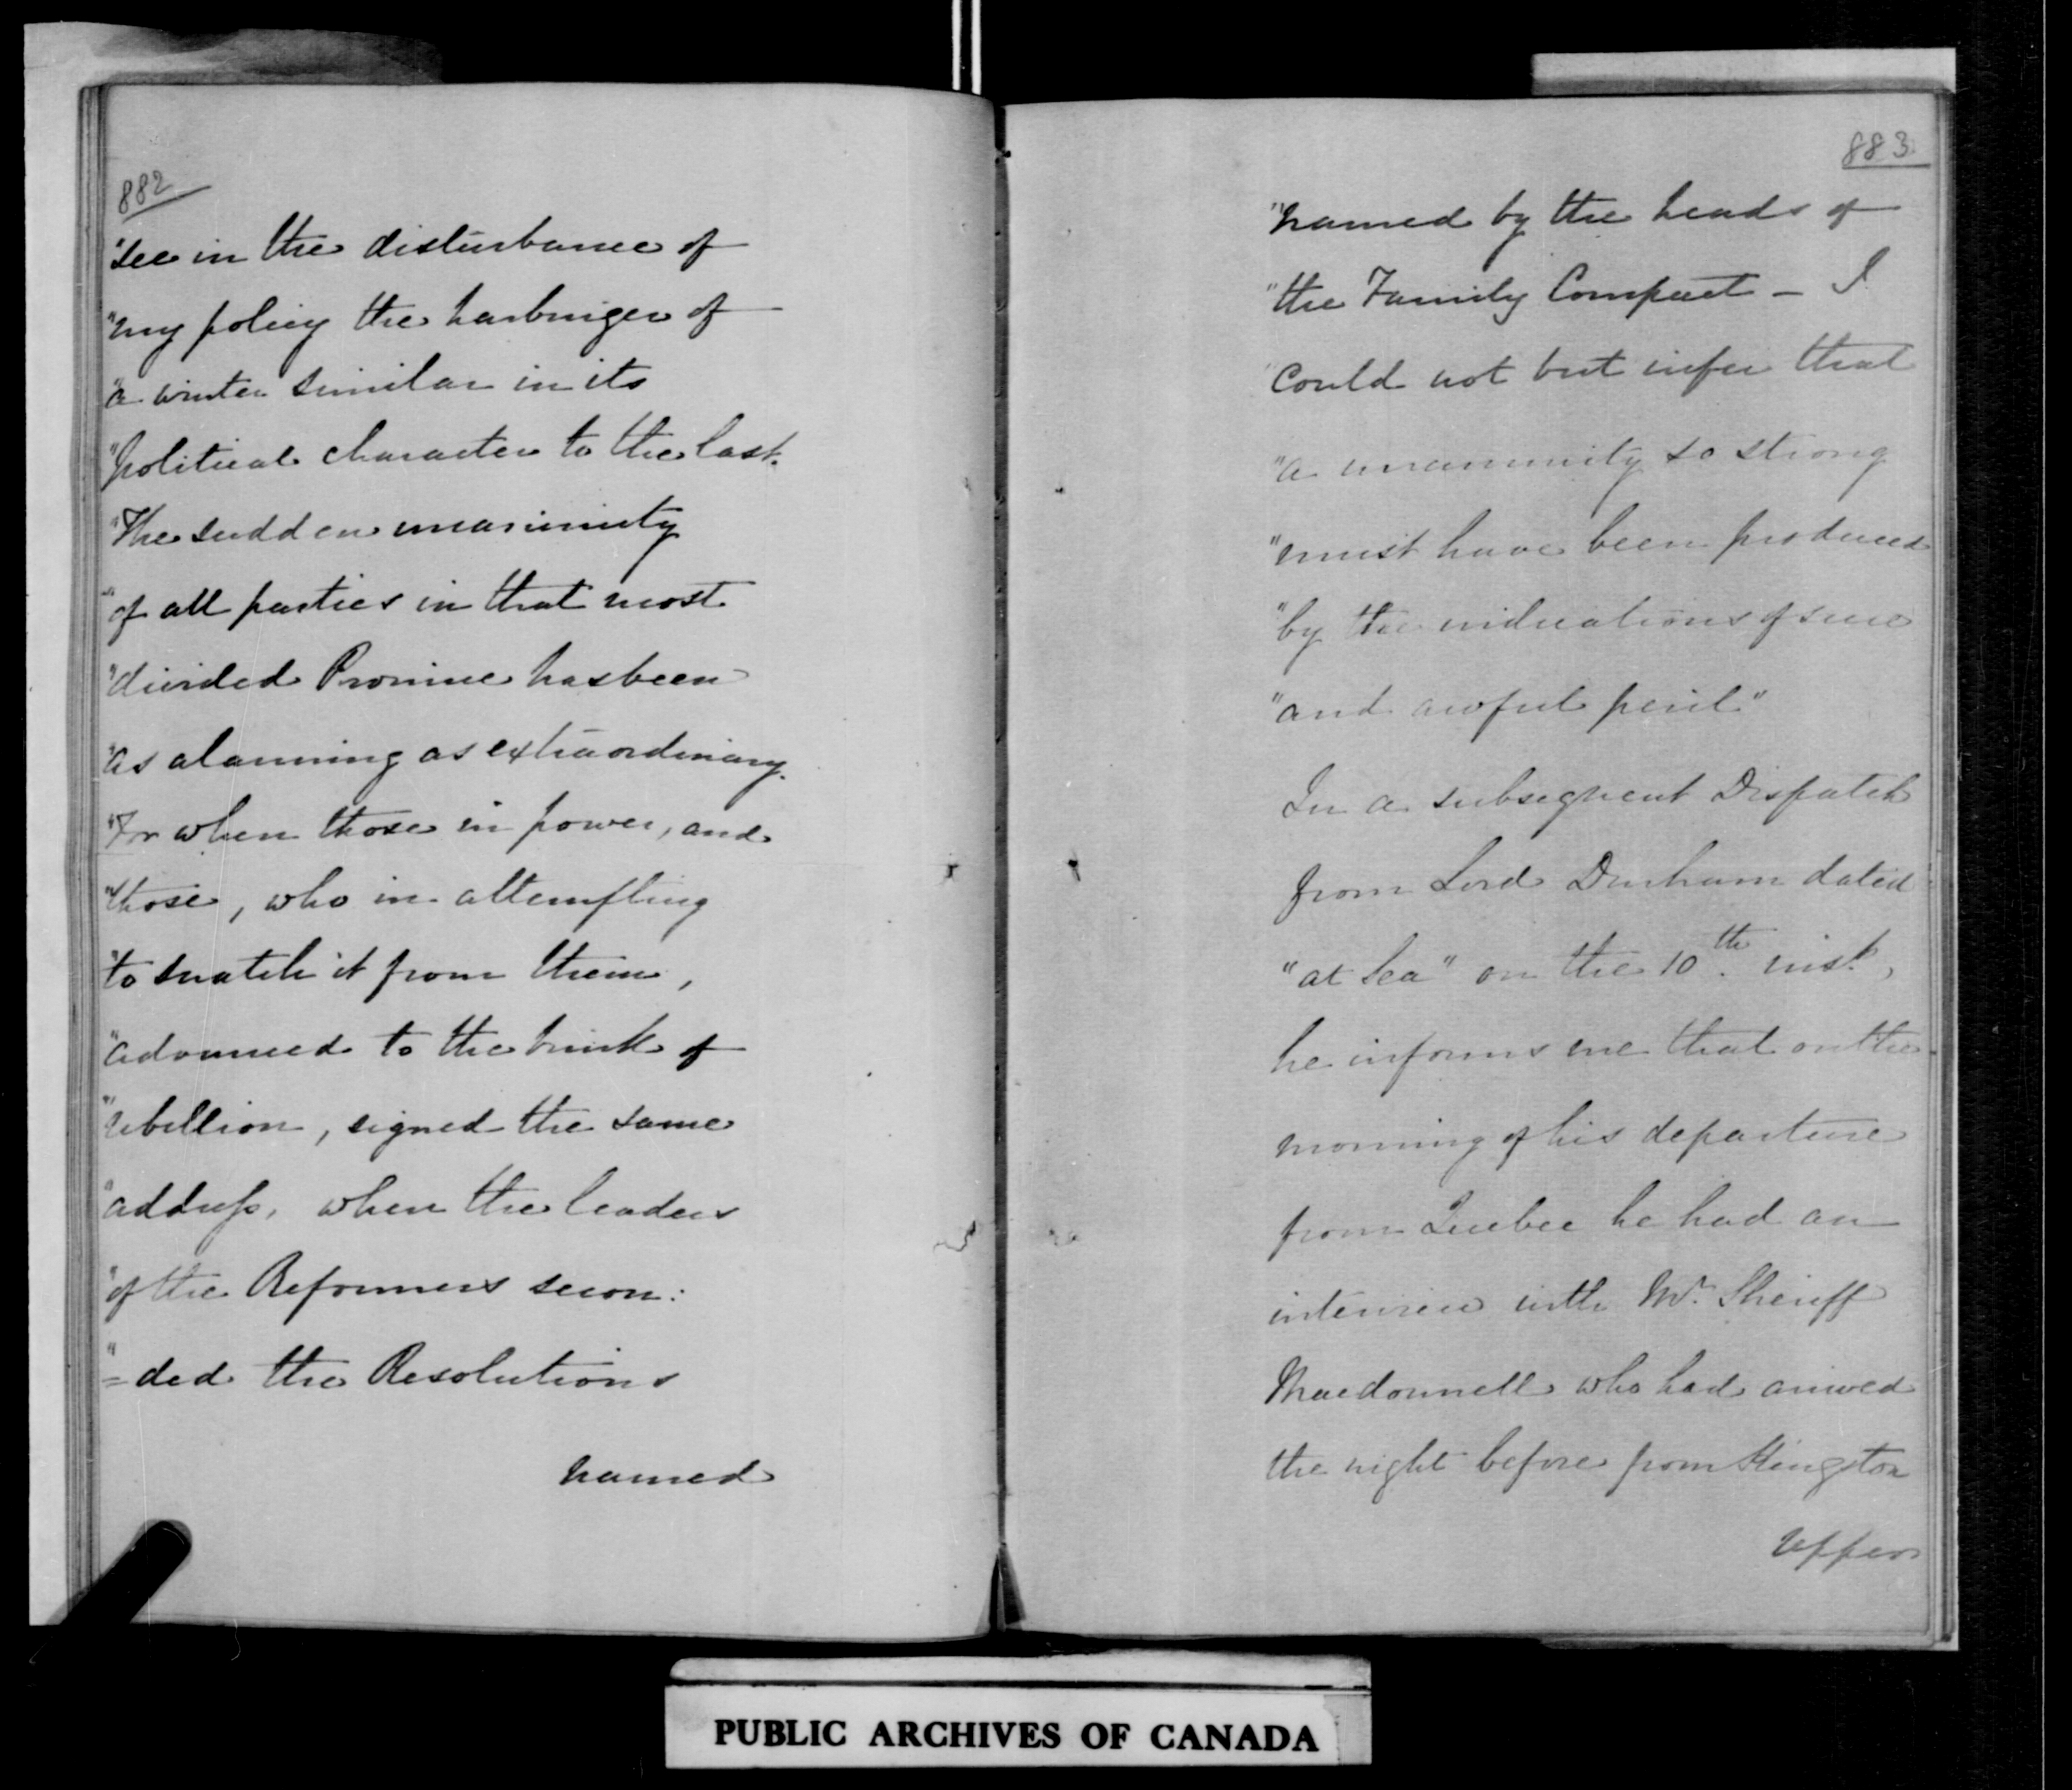 882
"see in the disturbance of
"my policy the harbinger of
"a winter similar in its
"political character to the last.
"The sudden unanimity
"of all parties in that most
"divided Province has been
"as alarming as extraordinary.
"For when those in power, and
"those, who in attempting
"to snatch it from them,
"advanced to the brink of
"rebellion, signed the same
"address, when the leaders
"of the Reformers secon:
"=ded the Resolutions
named
883
"named by the heads of
"the Family Compact – I
"could not but infer that
"a unanimity so strong
"must have been produced
"by the indications of sure
"and awful peril"
In a subsequent Dispatch
from Lord Durham dated
"at Sea" on the 10th. inst,
he informs me that on the
morning of his departure
from Quebec he had an
interview with Mr. Sheriff
Macdonnell who had arrived
the night before from Kingston
Upper
PUBLIC ARCHIVES OF CANADA